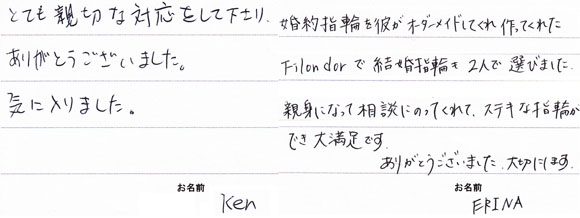 とても親切な対応をして下さり、
ありがとうございました。
気に入りました。
お名前
Ken
婚約指輪を彼がオーダーメイドしてくれ作ってくれた
Filondorで結婚指輪も2人で選びました。
親身になって相談にのってくれて、ステキな指輪が
でき大満足です。
ありがとうございました。大切にします。
お名前
ERINA